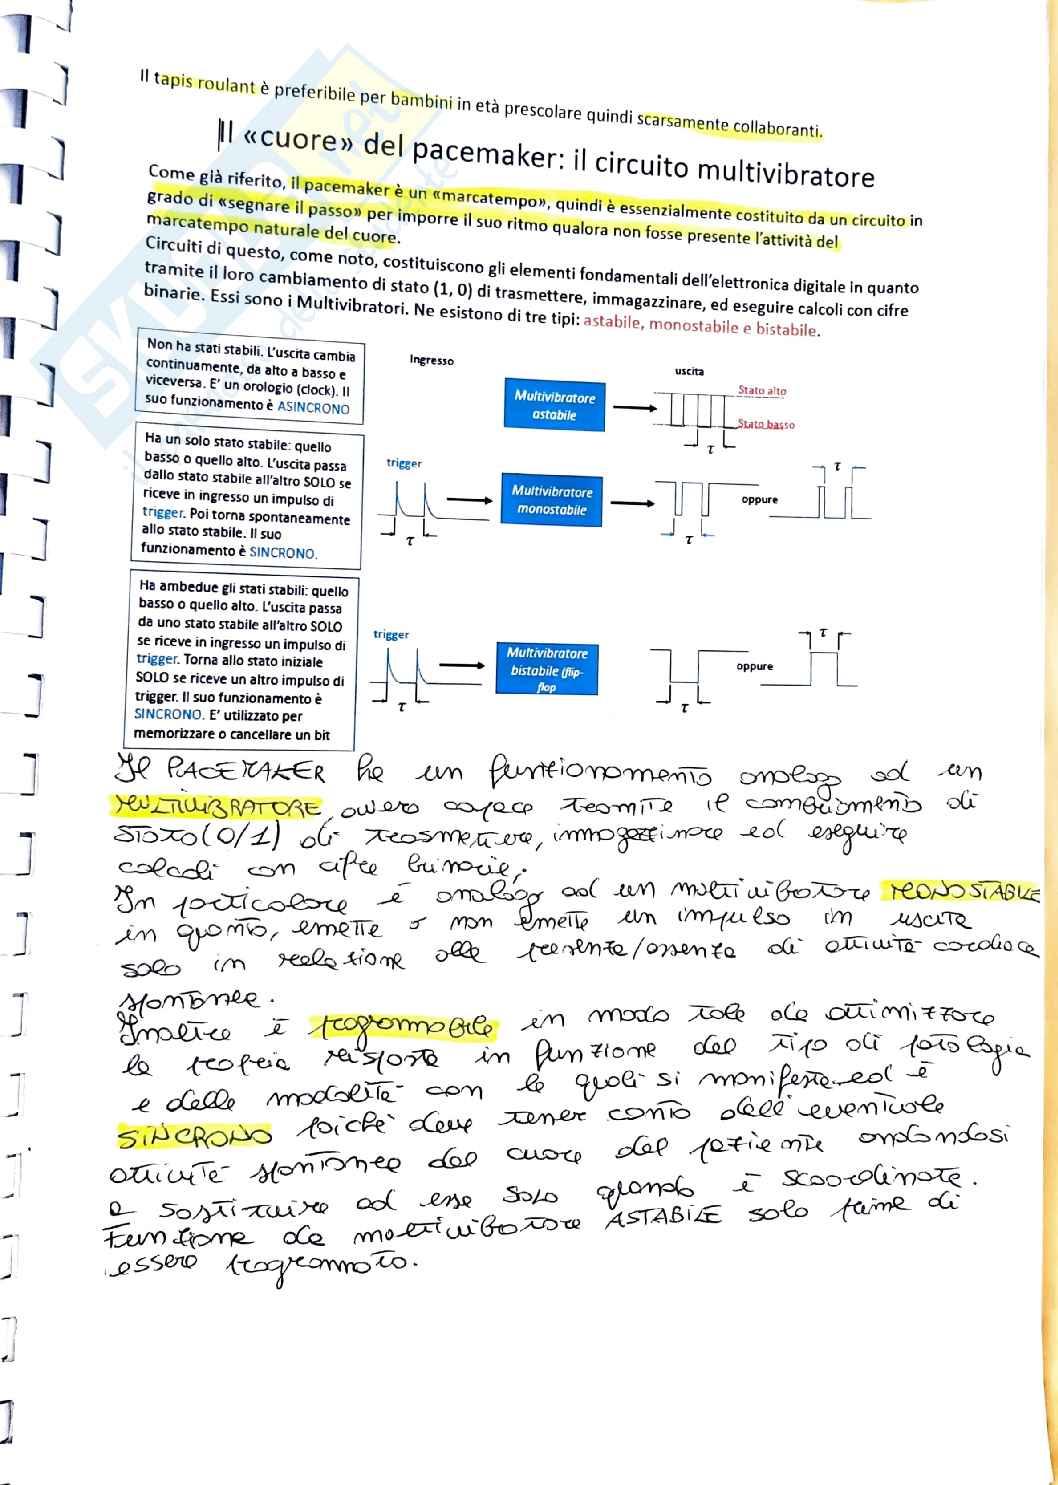 Il tapis roulant è preferibile per bambini in età prescolare quindi scarsamente collaboranti.
Il «cuore» del pacemaker: il circuito multivibratore
Come già riferito, il pacemaker è un «marcatempo», quindi è essenzialmente costituito da un circuito in
grado di «segnare il passo» per imporre il suo ritmo qualora non fosse presente l'attività del
marcatempo naturale del cuore.
Circuiti di questo, come noto, costituiscono gli elementi fondamentali dell'elettronica digitale in quanto
tramite il loro cambiamento di stato (1, 0) di trasmettere, immagazzinare, ed eseguire calcoli con cifre
binarie. Essi sono i Multivibratori. Ne esistono di tre tipi: astabile, monostabile e bistabile.
Non ha stati stabili. L'uscita cambia
continuamente, da alto a basso e
viceversa. E' un orologio (clock). Il
suo funzionamento è ASINCRONO
Ingresso
uscita
Multivibratore
astabile
Stato alto
Stato basso
τ
Ha un solo stato stabile: quello
basso o quello alto. L'uscita passa
dallo stato stabile all'altro SOLO se
riceve in ingresso un impulso di
trigger. Poi torna spontaneamente
allo stato stabile. Il suo
funzionamento è SINCRONO.
trigger
τ
Multivibratore
monostabile
τ
oppure
τ
Ha ambedue gli stati stabili: quello
basso o quello alto. L'uscita passa
da uno stato stabile all'altro SOLO
se riceve in ingresso un impulso di
trigger. Torna allo stato iniziale
SOLO se riceve un altro impulso di
trigger. Il suo funzionamento è
SINCRONO. E' utilizzato per
memorizzare o cancellare un bit
trigger
τ
Multivibratore
bistabile (flip-
flop
τ
oppure
τ
Il PACEMAKER ha un funzionamento analogo ad un
MULTIVIBRATORE, ovvero capace tramite il cambiamento di
stato (0/1) di trasmettere, immagazzinare ed eseguire
calcoli con cifre binarie.
In particolare è analogo ad un multivibratore MONOSTABILE
in quanto, emette o non emette un impulso in uscita
solo in relazione alla presenza/assenza di attività cardiaca
spontanea.
Inoltre è programmabile in modo tale da ottimizzare
la propria risposta in funzione del tipo di patologia
e delle modalità con le quali si manifesta ed è
SINCRONO poichè deve tener conto dell'eventuale
attività spontanea del cuore del paziente andandosi
a sostituire ad essa solo quando è scoordinata.
Funzione da multivibratore ASTABILE solo prima di
essere programmato.